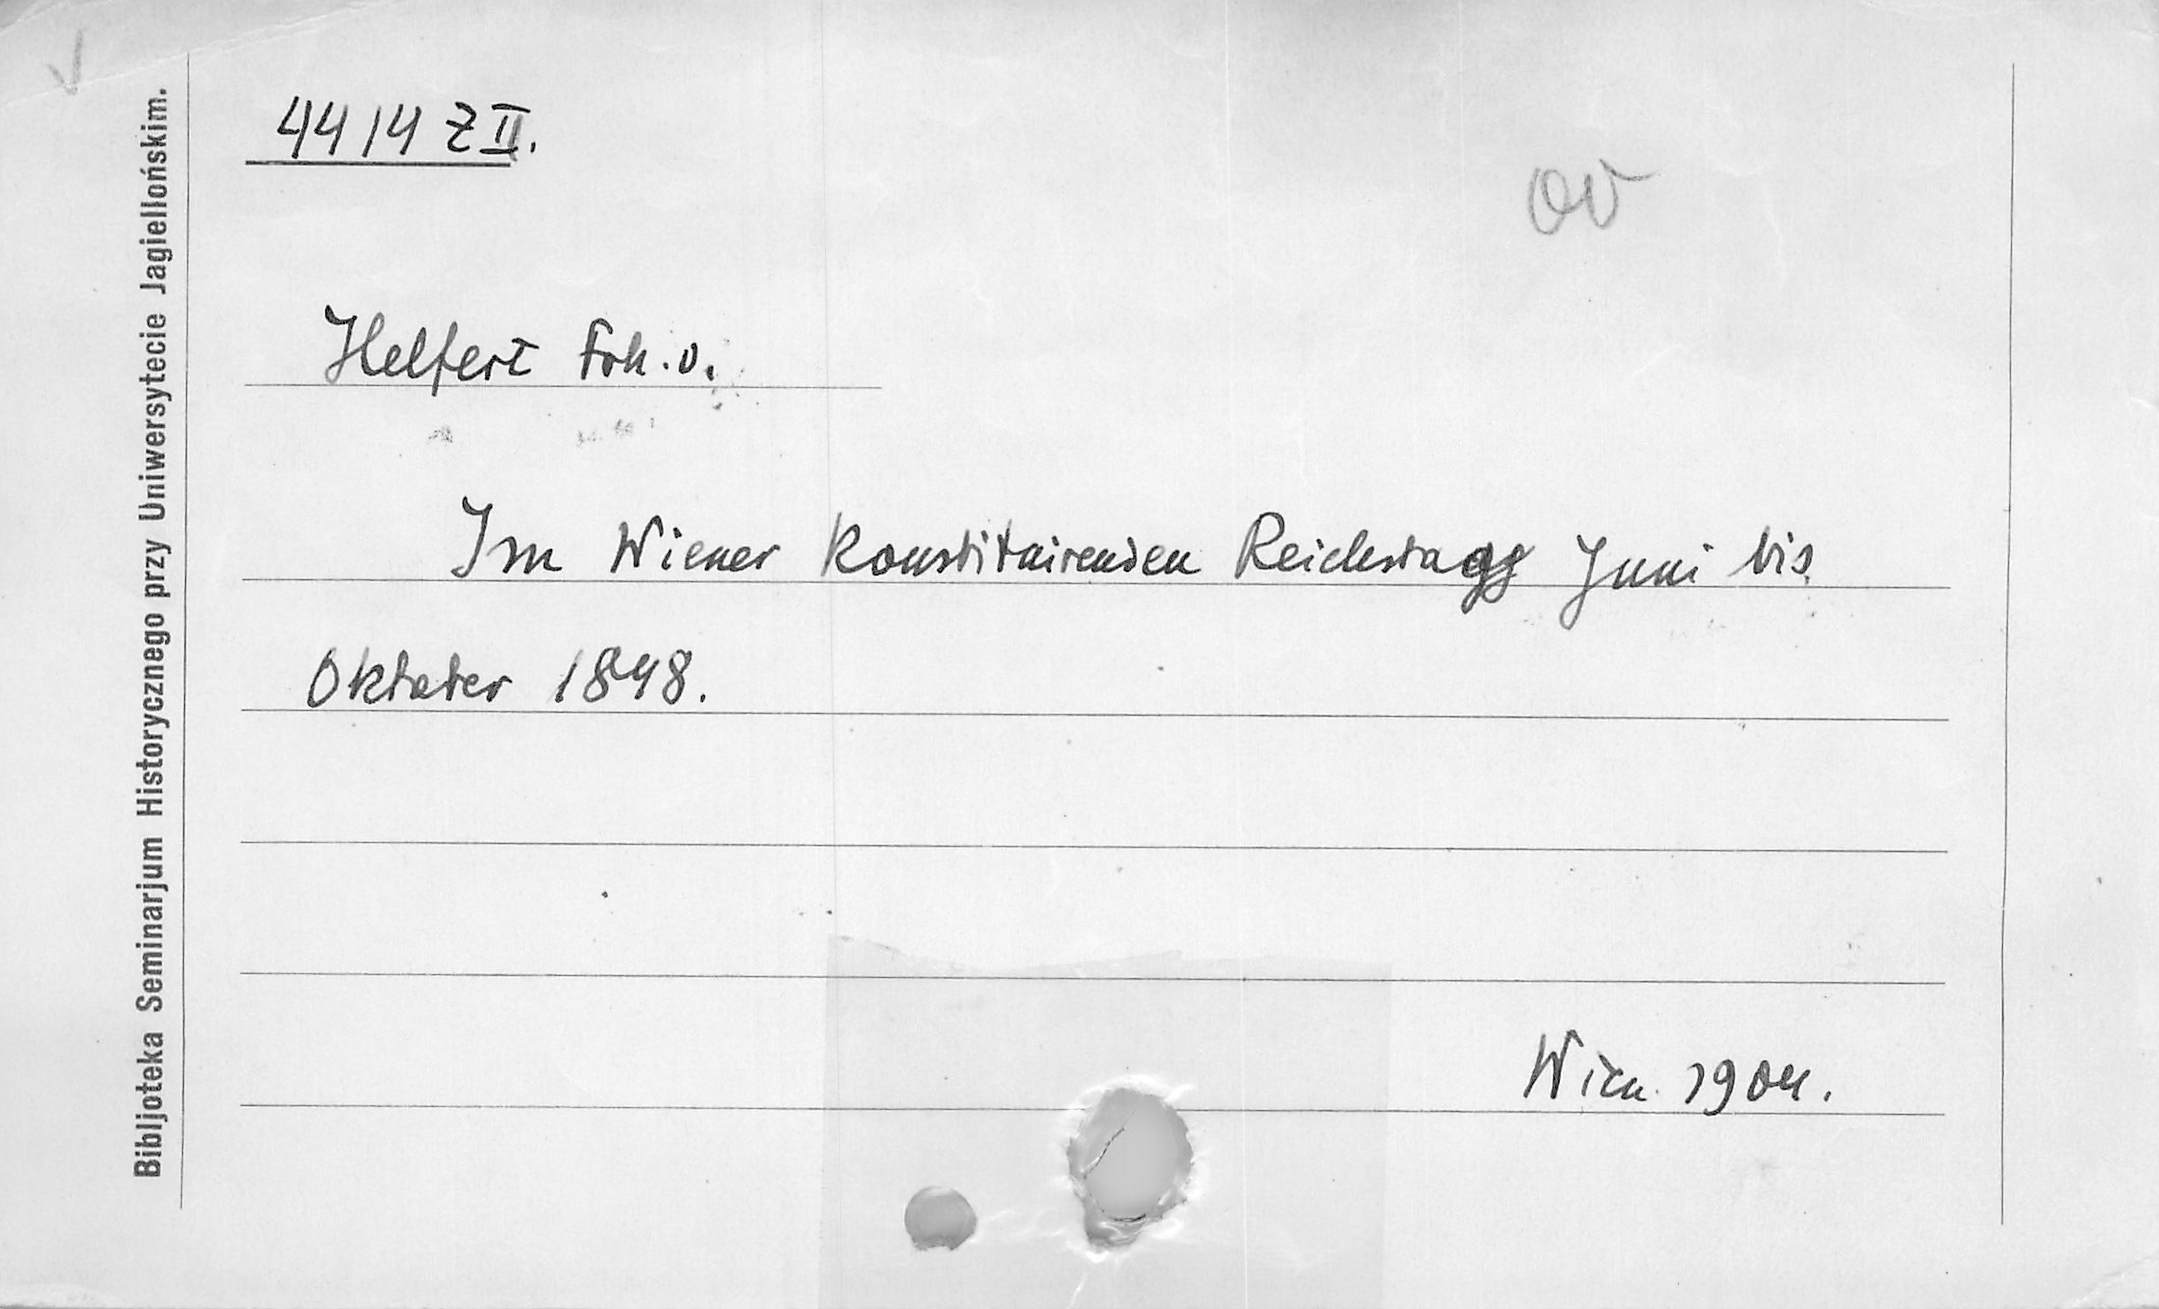 44/4 Z II.
OV
Helfert Frh. v.
Im Wiener Konstituirenden Reichstag Juni bis
Oktober 1848.
Wien 1904.
Bibljoteka Seminarjum Historycznego przy Uniwersytecie Jagiellońskim.